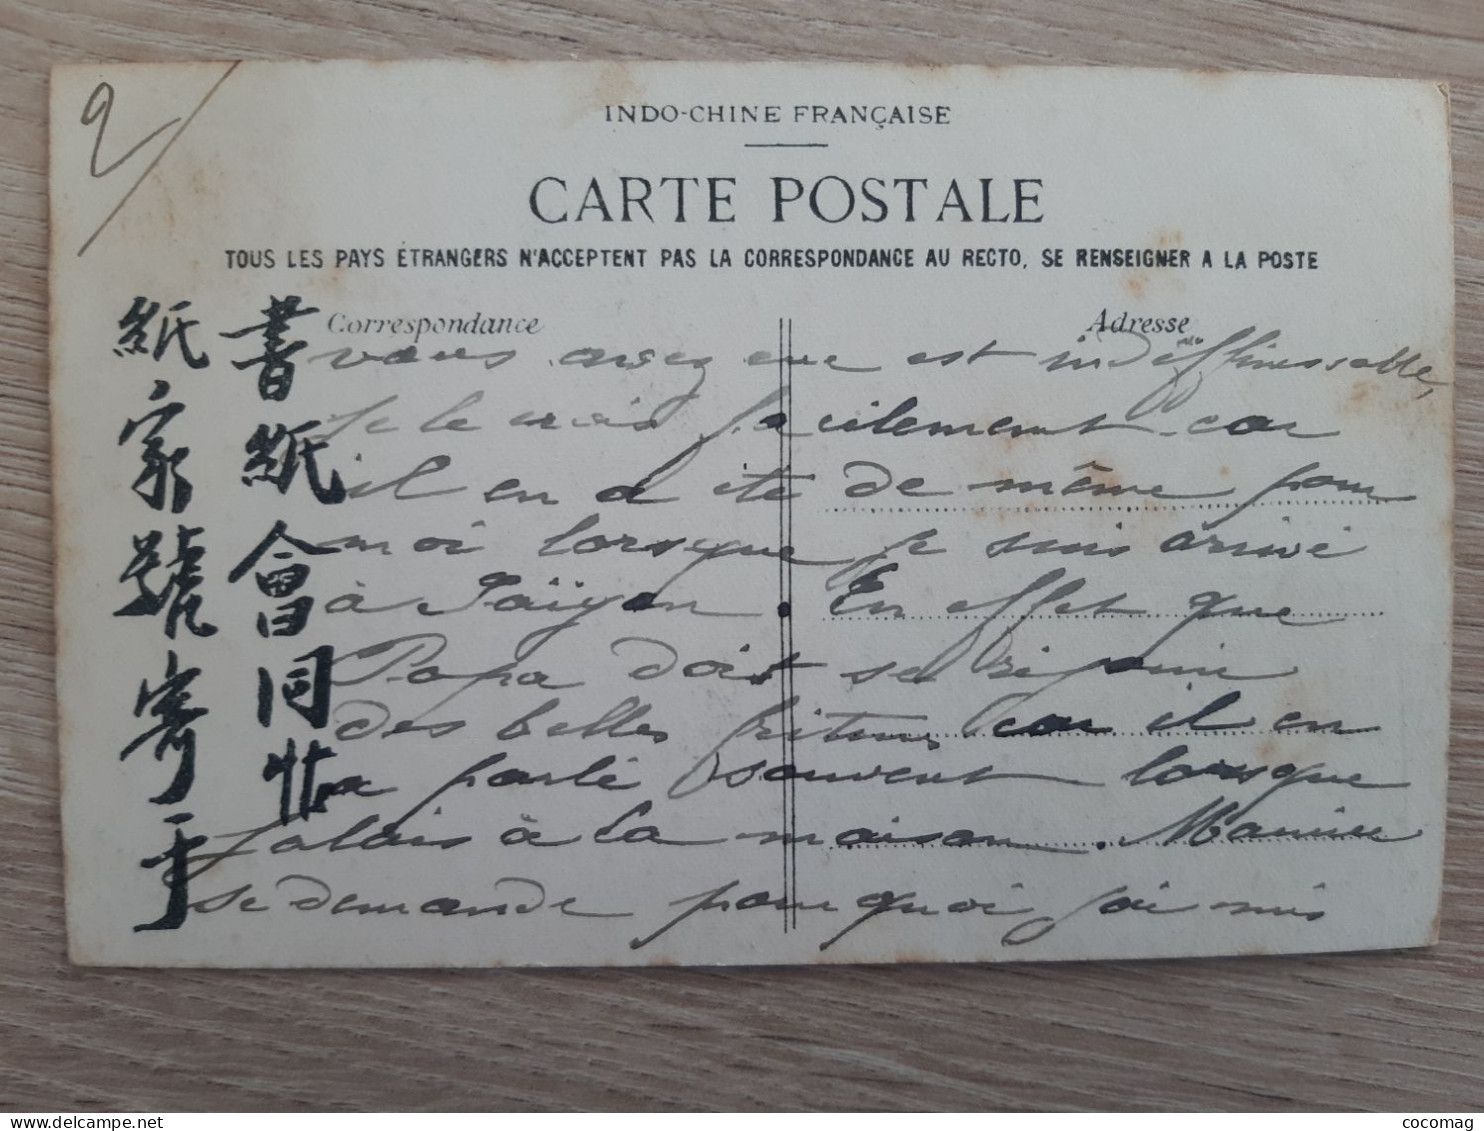 2
INDO-CHINE FRANÇAISE
CARTE POSTALE
TOUS LES PAYS ÉTRANGERS N'ACCEPTENT PAS LA CORRESPONDANCE AU RECTO, SE RENSEIGNER A LA POSTE
Correspondance
Adresse
書紙會同
紙家號寄手
vous avez eue est indéffinessable,
Je le crois facilement car
il en a été de même pour
moi lorsque je suis arrivé
à Saïgon. En effet que
Papa doit se réjouir
des belles fritures car il en
a parlé souvent lorsque
j'alais à la maison. Maurice
se demande pourquoi j'ai mis
cocomag